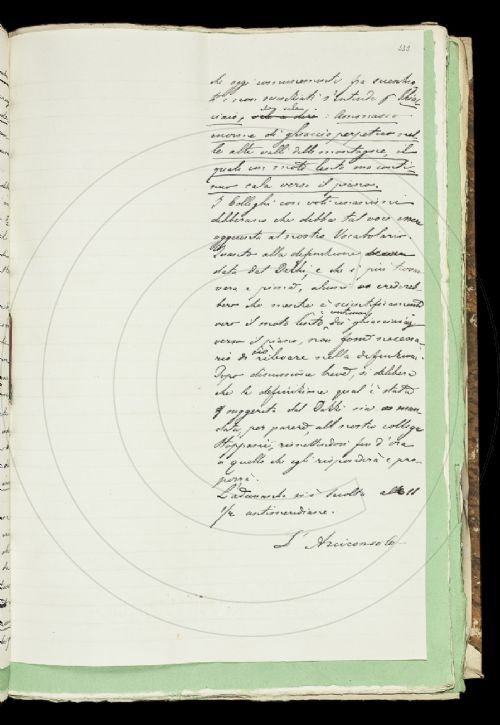 che oggi comunemente fra scienzia-
ti e non scienziati s'intende p Ghiac-
ciaio,
: Ammasso
enorme di ghiaccio perpetuo nel-
le alte valli delle montagne, il
quale con moto lento ma conti-
nuo cala verso il piano.
I Colleghi con voti unanimi
deliberano che debba tal voce essere
aggiunta al nostro Vocabolario.
Quanto alla definizione
data dal Dalbi, e che è più
vera e piena, alcuni credereb-
bero che mentre è scientificamente
vero il moto lento e continuo dei ghiacciai
verso il piano, non fosse necessa-
rio di ciò rilevare nella definizione.
Dopo discussione breve, si delibera
che la definizione qual'è stata
suggerita dal Dalbi sia man-
data, per parere, al nostro collega
Stoppani, rimettendosi fin d'ora
a quello che egli risponderà e pro-
porrà.
L'adunanza si è sciolta alle 11
1/2 antimeridiane.
L'Arciconsolo